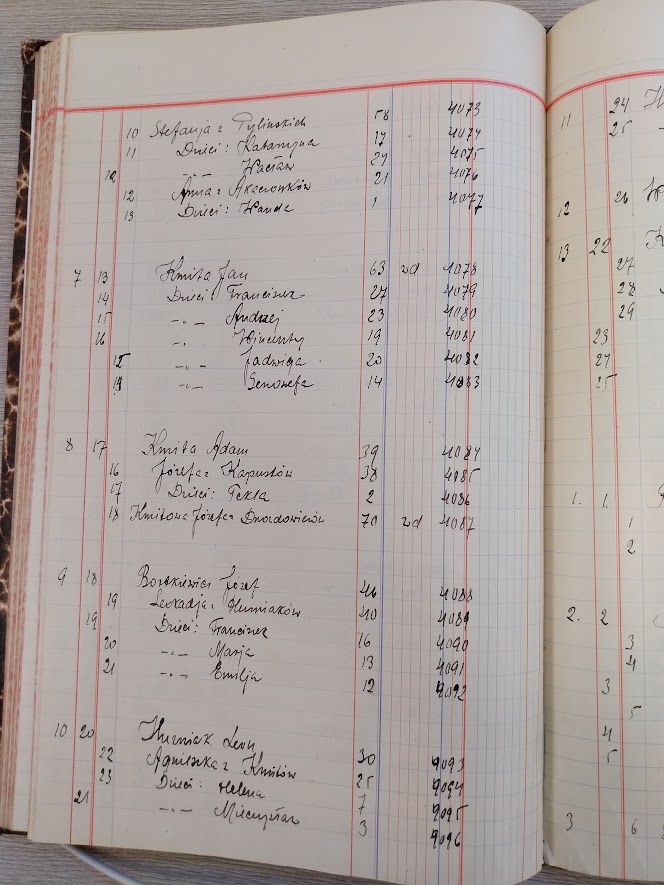 10 Stefanja z Pylinskich 58 4073
11 Dzieci: Katarzyna 17 4074
12 -„- Wacław 24 4075
12 Anna z 21 4076
13 Dzieci: Wanda 1 4077
7 13 Kmita Jan 63 wd 4078
14 Dzieci: Franciszek 27 4079
15 -„- Andrzej 23 4080
16 -„- Wincenty 19 4081
15 -„- Jadwiga 20 4082
-„- Genowefa 14 4083
8 17 Kmita Adam 39 4084
16 Józefa z Kapustów 38 4085
17 Dzieci: Tekla 2 4086
18 Kmitowa Józefa z 70 wd 4087
9 18 Bortkiewicz Józef 46 4088
19 Leokadja z Hurniaków 40 4089
19 Dzieci: Franciszek 16 4090
20 -„- Marja 13 4091
21 -„- Emilja 12 4092
10 20 Hurniak Leon 30 4093
22 Agnieszka z Kmitów 25 4094
23 Dzieci: Helena 7 4095
21 -„- Mieczysław 3 4096
11 24
25
12 26
13 22
27
28
29
23
24
25
1. 1.
1
2
2. 2
3
4
3
5
4
5
3 6